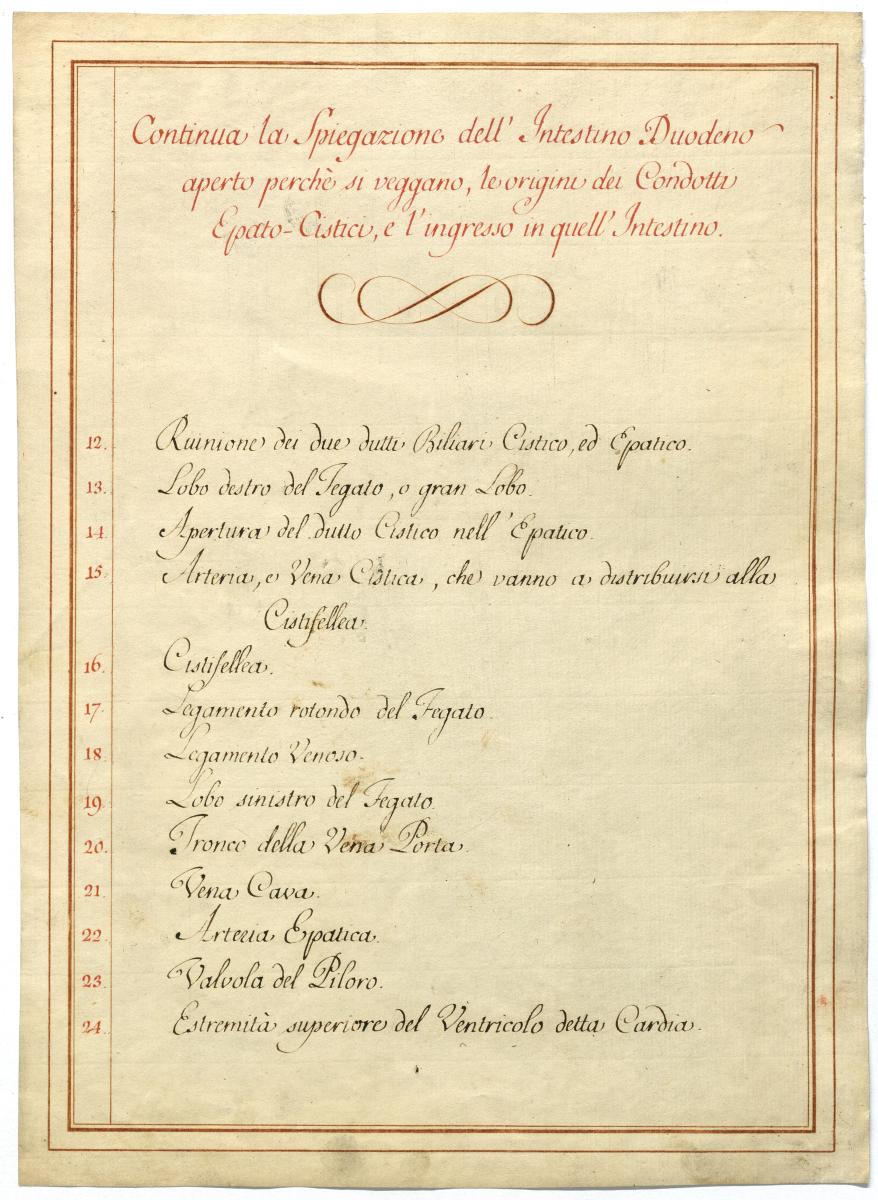 Continua la Spiegazione dell' Intestino Duodeno
aperto perchè si veggano, le origini dei Condotti
Epato-Cistici, e l'ingresso in quell' Intestino.
12. Ruinione dei due dutti Biliari Cistico, ed Epatico.
13. Lobo destro del Fegato, o gran Lobo.
14. Apertura del dutto Cistico nell' Epatico.
15. Arteria, e Vena Cistica, che vanno a distribuirsi alla
Cistifellea.
16. Cistifellea.
17. Legamento rotondo del Fegato.
18. Legamento Venoso.
19. Lobo sinistro del Fegato.
20. Tronco della Vena Porta.
21. Vena Cava.
22. Arteria Epatica.
23. Valvola del Piloro.
24. Estremità superiore del Ventricolo detta Cardia.